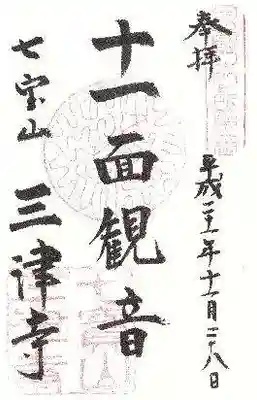 奉拝
平成二十一年十一月二十八日
十一面観音
七宝山
三津寺